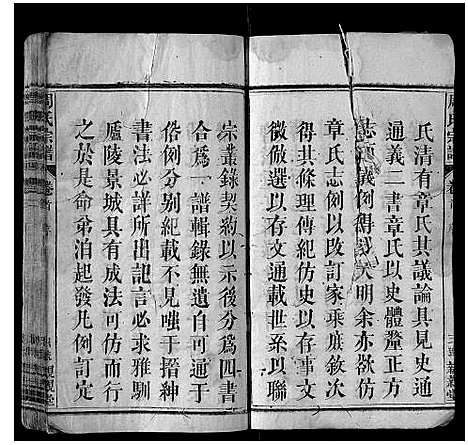 氏清有章氏其議論具見史通
通義二書章氏以史體釐正方
志源義例得以大明余亦欲仿
章氏志例以改訂家乘庶敘次
得其條理傳紀仿史以記事
微倣選以存文通載世系以聯
宗叢錄契約以示後分爲四書
合爲一譜輯錄無遺自可與流
俗例分別紀載不見嗤于搢紳
書法必詳所出記言必求雅馴
廬陵景城具有成法可仿而行
之於是命弟洎起發凡例訂定
周氏宗譜
卷首